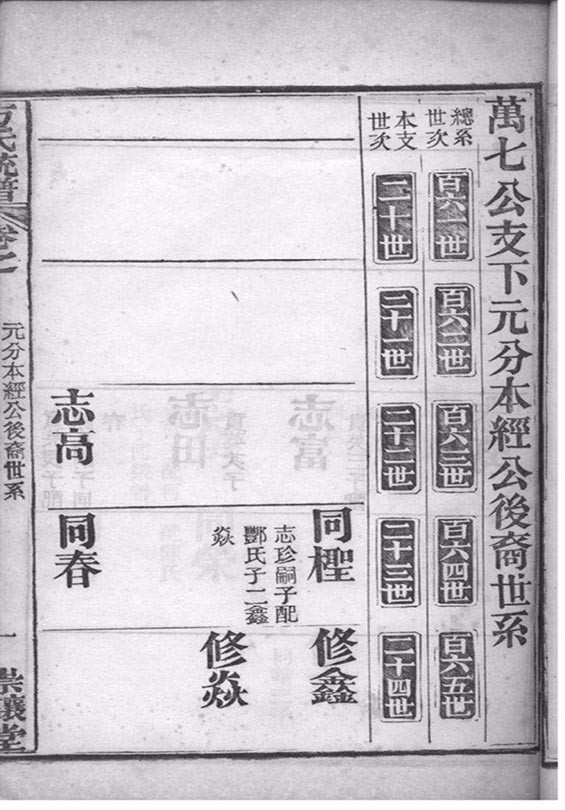 萬七公支下元分本經公後裔世系
總系
世次
百六一世
百六二世
百六三世
百六四世
百六五世
本支
世次
二十世
二十一世
二十二世
二十三世
二十四世
同檉
志珍嗣子配
酆氏子二鑫
焱
修鑫
修焱
志高
同春
氏統譜
卷之
元分本經公後裔世系
一
崇讓堂